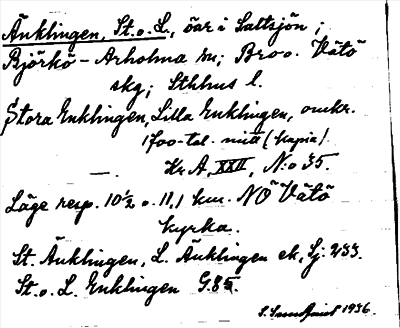 Änklingen, St. o. L., öar i Saltsjön;
Björkö-Arholma sn; Bro o. Vätö
skg; Sthlms l.
Stora Enklingen, Lilla Enklingen, omkr.
1700-tal. mitt (kopia).
Kr. A, XXII, N:o 35.
Läge resp. 10½ o. 11,1 km. NÖ Vätö
kyrka.
St. Änklingen, L. Änklingen ek, Sj. 233.
St. o. L. Enklingen G. 85.
1936.